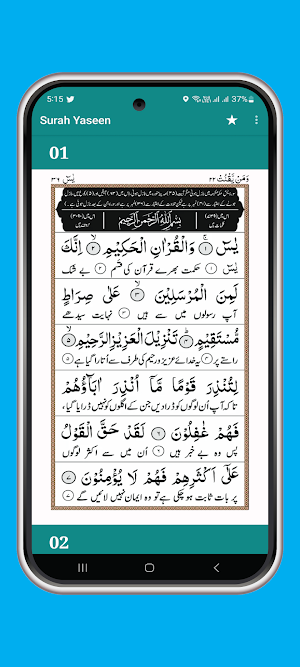 5:15
37%
Surah Yaseen
01
وَمَنْ يَّقْنُتْ ٢٢
يٰسٓ ٣٦
بِسْمِ اللّٰهِ الرَّحْمٰنِ الرَّحِيْمِ
يٰسٓ ١ وَالْقُرْاٰنِ الْحَكِيْمِ ٢ اِنَّكَ
یٰسٓ ١ حکمت بھرے قرآن کی قسم ٢ بے شک
لَمِنَ الْمُرْسَلِيْنَ ٣ عَلٰى صِرَاطٍ
آپ رسولوں میں سے ہیں ٣ نہایت سیدھے
مُّسْتَقِيْمٍ ٤ تَنْزِيْلَ الْعَزِيْزِ الرَّحِيْمِ ٥
راستے پر ٤ یہ خدائے عزیز و رحیم کی طرف سے اُتارا گیا ہے
لِتُنْذِرَ قَوْمًا مَّآ اُنْذِرَ اٰبَآؤُهُمْ
تاکہ آپ اُن لوگوں کو ڈرا دیں جن کے اگلوں کو نہیں ڈرایا گیا،
فَهُمْ غٰفِلُوْنَ ٦ لَقَدْ حَقَّ الْقَوْلُ
پس وہ بے خبر ہیں ٦ اُن میں سے اکثر لوگوں
عَلٰٓى اَكْثَرِهِمْ فَهُمْ لَا يُؤْمِنُوْنَ ٧
پر بات ثابت ہو چکی ہے تو وہ ایمان نہیں لائیں گے ٧
02